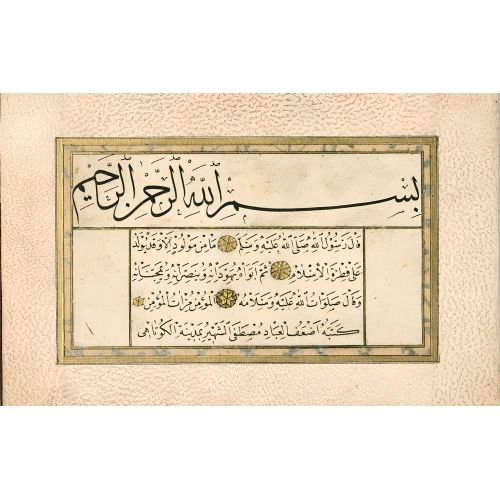 بسم الله الرحمن الرحيم
قال رسول الله صلى الله عليه وسلم ما من مولود الا وقد يولد
على فطرة الاسلام ثم ابواه يهودانه وينصرانه ويمجسانه
وقال صلوات الله عليه وسلامه المؤمن مرآت المؤمن
كتبه اضعف العباد مصطفى الشهير بمدينة